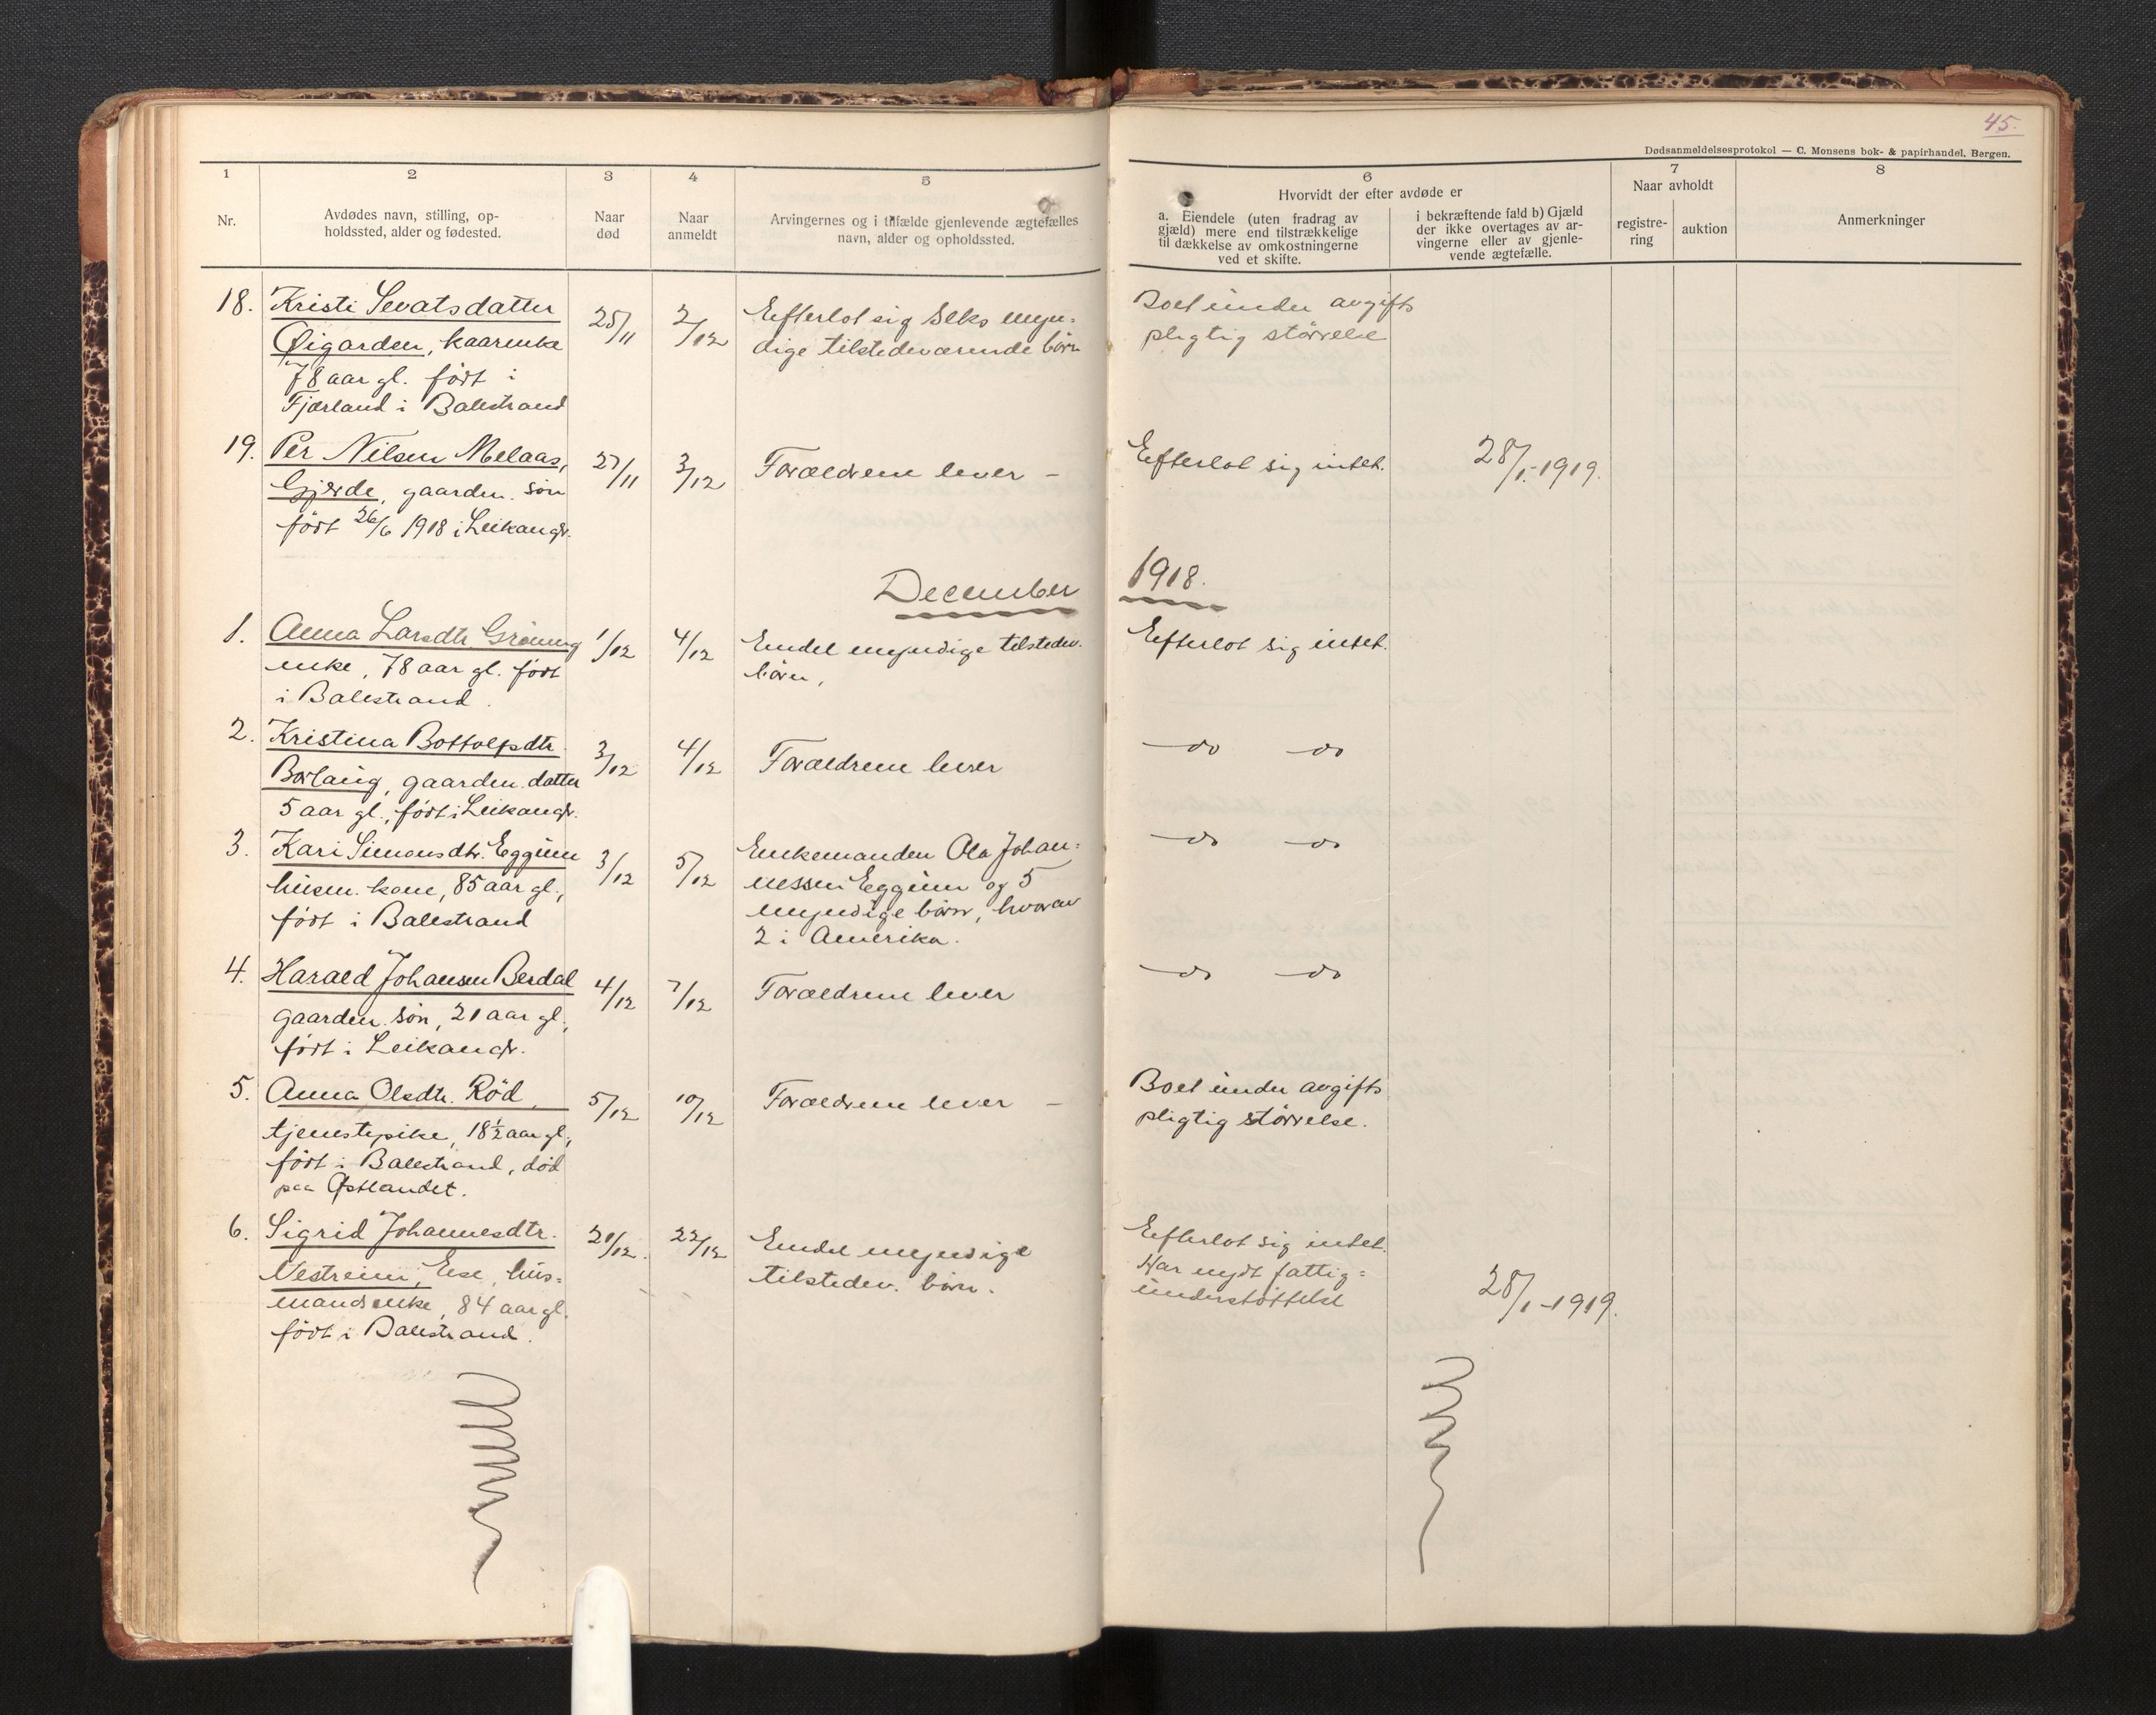 45.
Dødsanmeldelsesprotokol — C. Monsens bok- & papirhandel, Bergen.
1
2
3
4
5
6
7
8
Nr.
Avdødes navn, stilling, op-
holdssted, alder og fødested.
Naar
død
Naar
anmeldt
Arvingernes og i tilfælde gjenlevende ægtefælles
navn, alder og opholdssted.
Hvorvidt der efter avdøde er
a. Eiendele (uten fradrag av
gjæld) mere end tilstrækkelige
til dækkelse av omkostningerne
ved et skifte.
i bekræftende fald b) Gjæld
der ikke overtages av ar-
vingerne eller av gjenle-
vende ægtefælle.
Naar avholdt
registre-
ring
auktion
Anmerkninger
18. Kristi Sevatsdatter
Øigarden, kaarenke
78 aar gl. født i
Fjærland i Balestrand
25/11
2/12
Efterlot sig 3 myn=
dige tilstedeværende børn
Boet under avgifts
pligtig størrelse
19. Per Nilsen Melaas,
Gjerde, gaardm. søn
født 26/6 1918 i Leikangr.
27/11
3/12
Forældrene lever –
Efterlot sig intet.
28/1-1919.
December 1918.
1. Anna Larsdtr Grøning
enke, 78 aar gl. født
i Balestrand.
1/12
4/12
Endel myndige tilstedev.
børn,
Efterlot sig intet.
2. Kristina Bottolfsdtr.
Borlaug, gaardm. datter
5 aar gl., født i Leikangr.
3/12
4/12
Forældrene lever
do do
3. Kari Simonsdtr. Eggum
husm. kone, 85 aar gl.,
født i Balestrand
3/12
5/12
Enkemanden Ola Johan=
nessen Eggum og 5
myndige børn, hvorav
2 i Amerika.
do do
4. Harald Johansen Berdal
gaardm. søn, 21 aar gl.,
født i Leikangr.
4/12
7/12
Forældrene lever
do do
5. Anna Olsdtr. Röd,
tjenestepike, 18½ aar gl.,
født i Balestrand, død
paa Østlandet.
5/12
10/12
Forældrene lever –
Boet under avgifts
pligtig størrelse.
6. Sigrid Johannesdtr.
Nestreim, Ese, hus=
mandsenke, 84 aar gl.
født i Balestrand.
20/12.
22/12
Endel myndige
tilstedev. børn.
Efterlot sig intet.
Har nydt fattig=
understøttelse
28/1-1919.